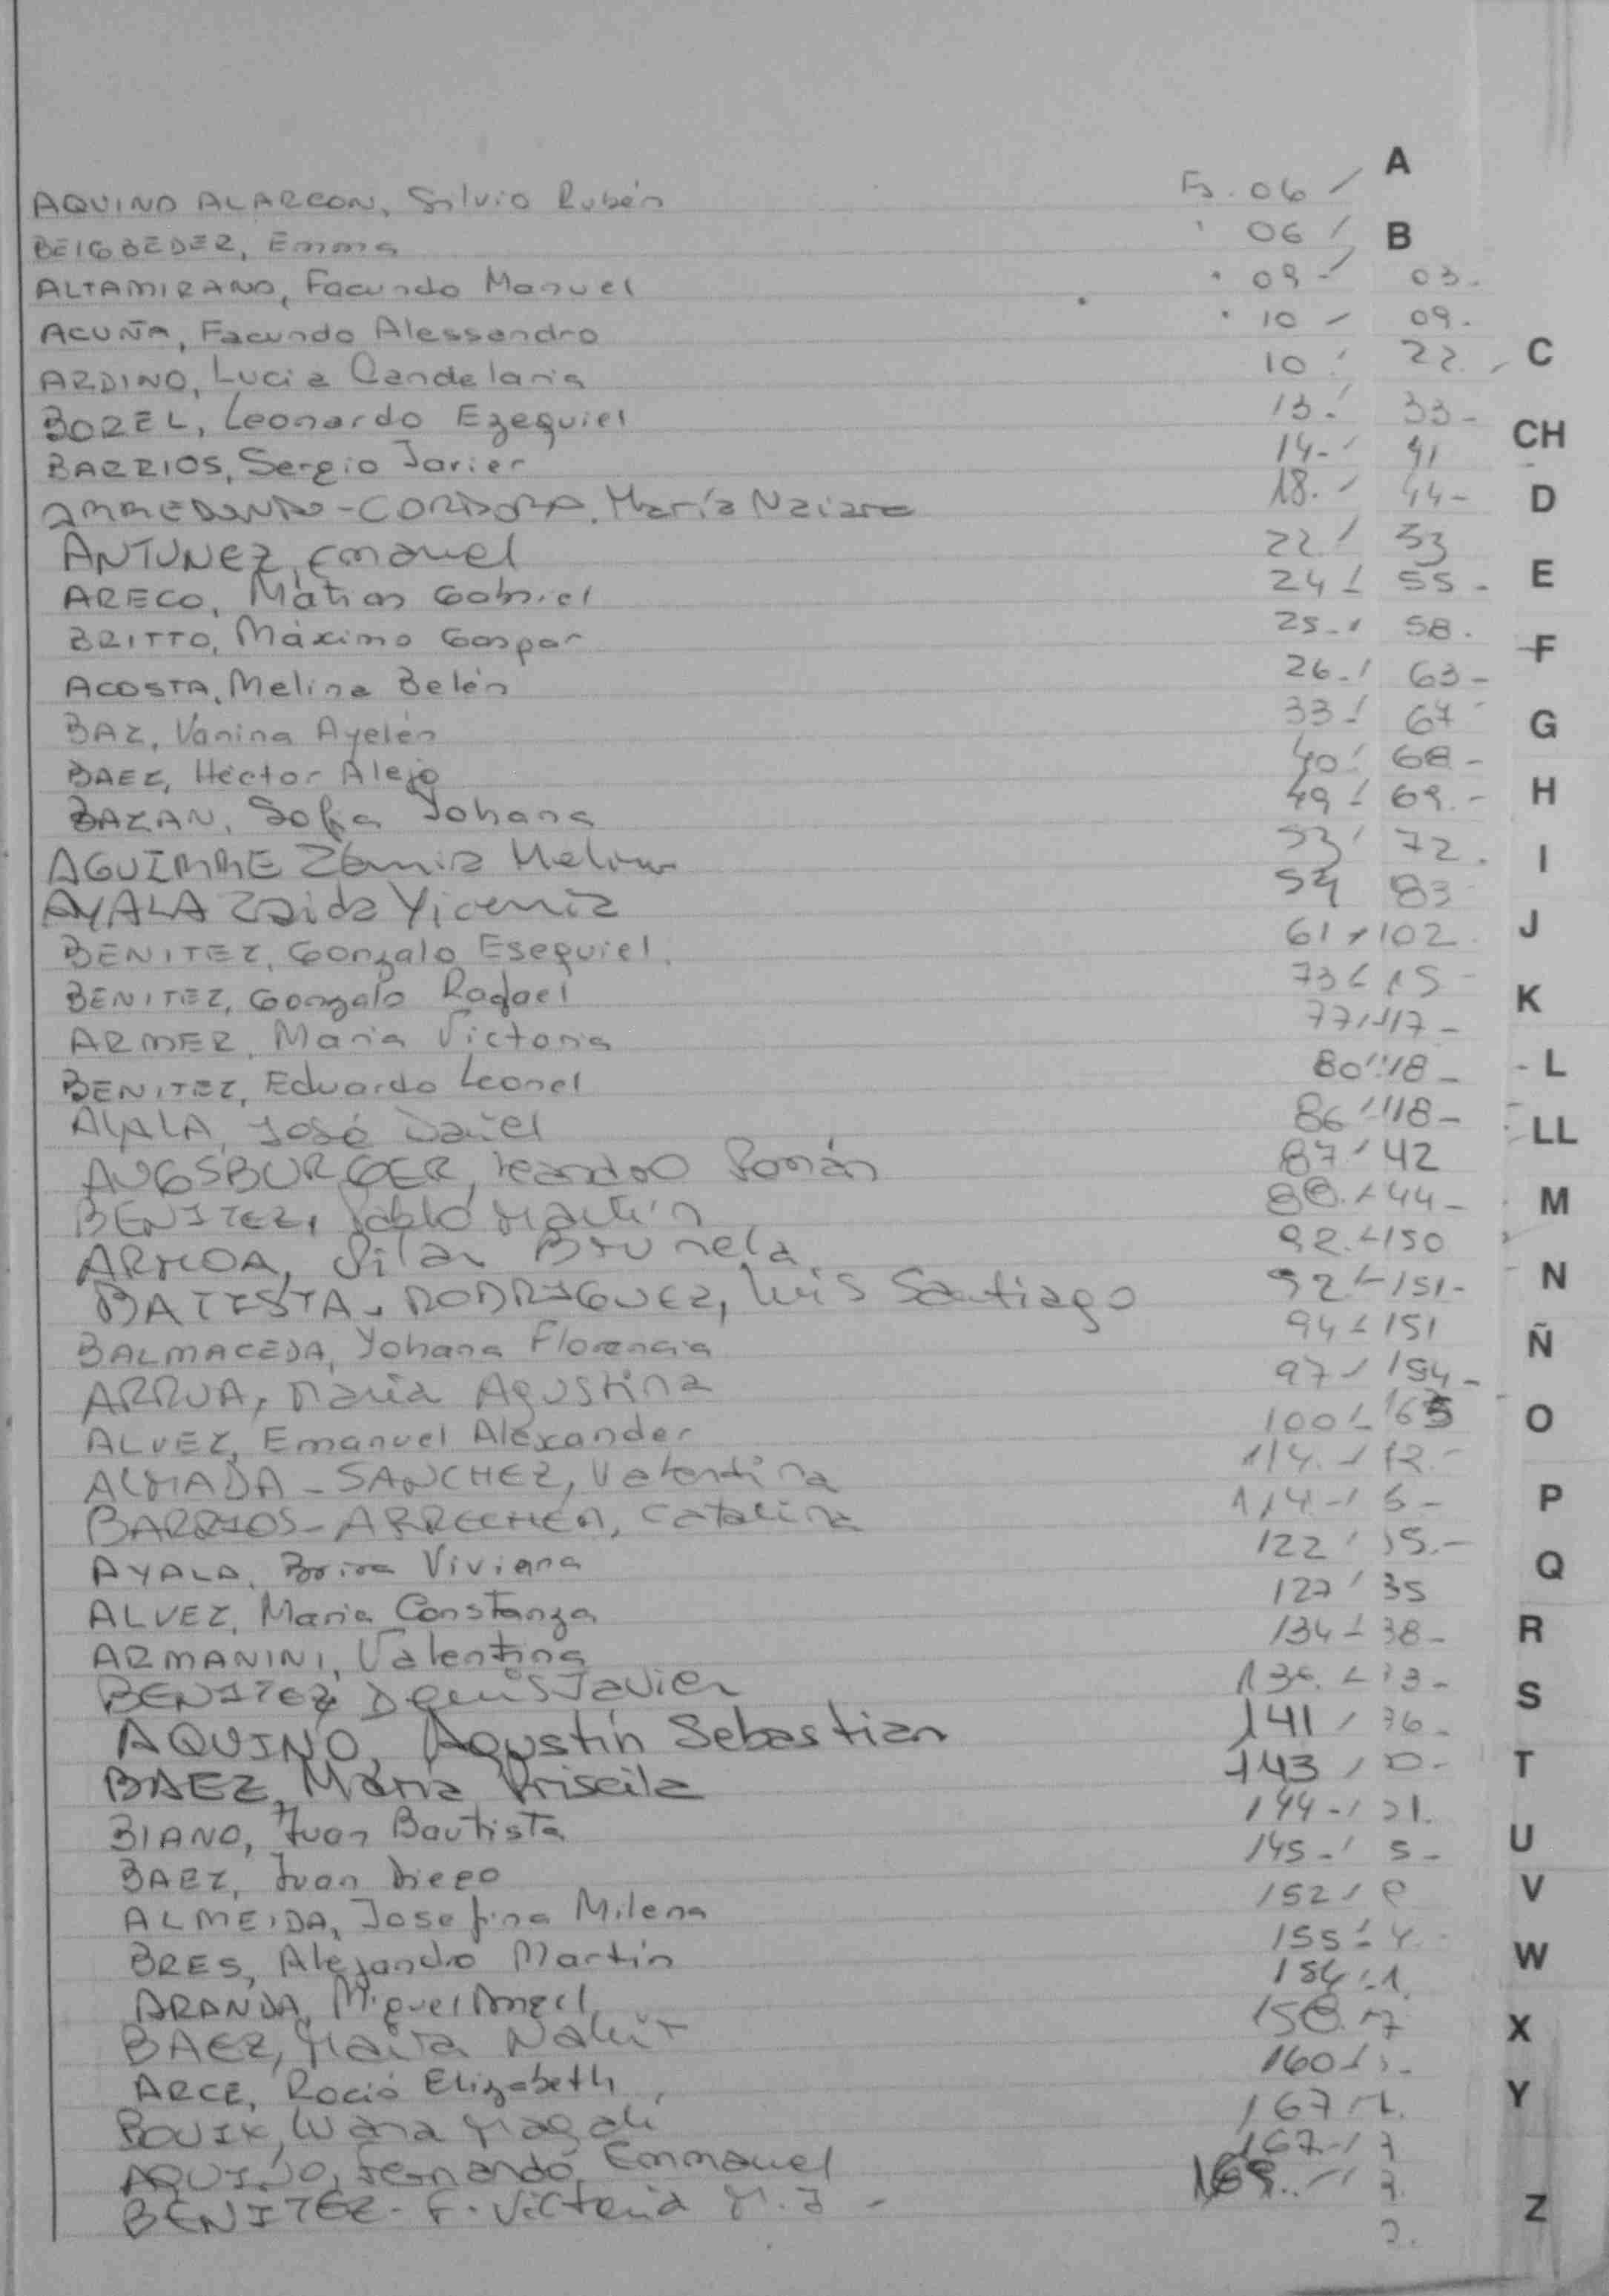 A
AQUINO ALARCON, Silvio Rubén Fs. 06 /
BEIGBEDER, Emma " 06 / B
ALTAMIRANO, Facundo Manuel " 09 - / 03.
ACUÑA, Facundo Alessandro " 10 - 09.
ARDINO, Lucia Candelaria 10 / 22. C
BOREL, Leonardo Ezequiel 13. / 33 -
BARRIOS, Sergio Javier 14 - / 41 CH
ARREDONDO - CORDOBA, María Naiara 18. / 44 - D
ANTUNEZ, Emanuel 22 / 53
ARECO, Matias Gabriel 24 / 55 - E
BRITTO, Máximo Gaspar 25 - / 58.
ACOSTA, Melina Belén 26 - / 63 - F
BAZ, Vanina Ayelén 33 - / 67 G
BAEZ, Héctor Alejo 40 / 68 -
BAZAN, Sofia Johana 49 / 69. - H
AGUIRRE Zamira 53 / 72. I
AYALA Zaida 54 83
BENITEZ, Gonzalo Esequiel. 61 / 102 J
BENITEZ, Gonzalo Rafael 73 / 15 - K
ARMER, Maria Victoria 77 / 117 -
BENITEZ, Eduardo Leonel 80 118 - L
AYALA, José Daniel 86 / 118 - LL
AUGSBURGER, Leandro Román 87 / 42
BENITEZ, Pablo Martín 88. / 44 - M
ARMOA, Pilar Brunela 92. / 150
BATISTA - RODRIGUEZ, Luis Santiago 92 / 151 - N
BALMACEDA, Yohana Florencia 94 / 151 Ñ
ARRUA, Maria Agustina 97 / 154 -
ALVEZ, Emanuel Alexander 100 / 165 O
ALMADA - SANCHEZ, Valentina 114. /
BARRIOS - ARRECHEA, Catalina 114 - / 6 - P
AYALA, Viviana 122 / 15. -
ALVEZ, Maria Constanza 127 / 35 Q
ARMANINI, Valentina 134 / 38 - R
BENITEZ, Denis Javier 136. / 73 - S
AQUINO, Agustín Sebastian 141 / 36 -
BAEZ, María Priscila 143 / 0 - T
BIANO, Juan Bautista 144 - / 21.
BAEZ, Juan Diego 145 - / 5 - U
ALMEIDA, Josefina Milena 152 / V
BRES, Alejandro Martín 155 / 4. W
ARANDA, Miguel Angel 1
BAEZ, Maira 158. 7 X
ARCE, Rocío Elizabeth 160 /
Magali 167 / Y
AQUINO, Fernando Emmanuel 167 - / 7
BENITEZ - F. Victoria M. J - 169. . / 7. Z